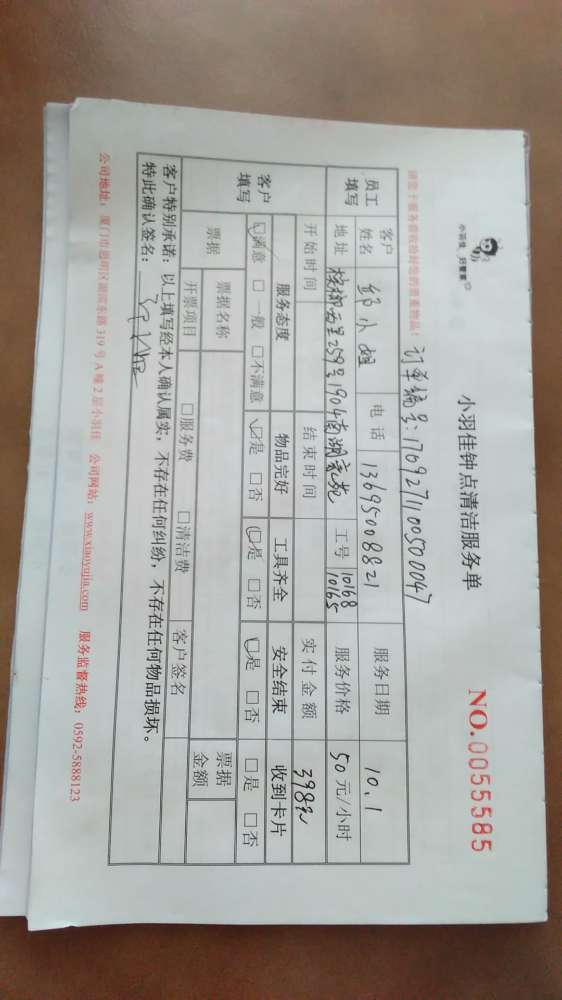 小羽佳 好管家
小羽佳钟点清洁服务单
NO.0055585
订单编号:1769271100500047
请您于服务前收拾好您的贵重物品!
员工填写 客户姓名 邹小姐 电话 13695008821 服务日期 10.1
地址 槟榔西里259号1904南湖豪苑 工号 10168 10165 服务价格 50元/小时
开始时间 结束时间 实付金额 398元
客户填写 服务态度 物品完好 工具齐全 安全结束 收到卡片
☑满意 □一般 □不满意 ☑是 □否 ☑是 □否 ☑是 □否 □是 □否
票据 票据名称 票据金额
开票项目 □服务费 □清洁费 客户签名
客户特别承诺:以上填写经本人确认属实,不存在任何纠纷,不存在任何物品损坏。
特此确认签名:
公司地址:厦门市思明区湖滨东路319号A幢2层小羽佳 公司网站:www.xiaoyujia.com 服务监督热线:0592-5888123